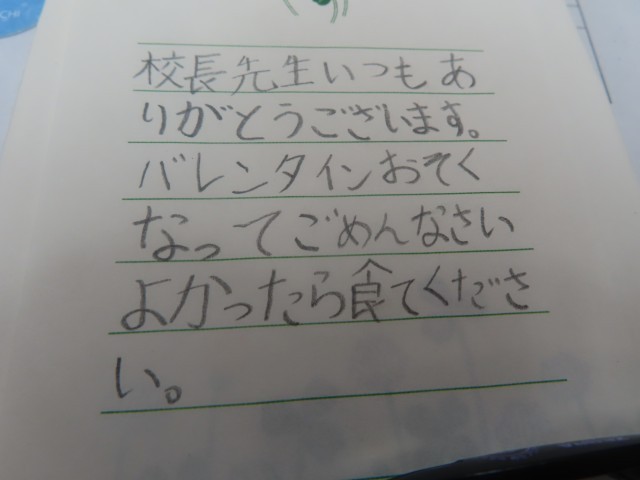 校長先生いつもあ
りがとうございます。
バレンタインおそく
なってごめんなさい
よかったら食てくださ
い。